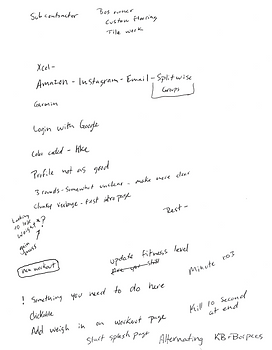 Subcontractor
Bus owner
Custom flooring
Tile work
Xcel -
Amazon - Instagram - Email - Splitwise
Groups
Garmin
Login with Google
Color coded - like
Profile not as good
3 rounds - somewhat unclear - make more clear
Clunky verbage - first intro page
Looking
to lose
weight?
gain
Rest -
new workout
update fitness level
Minute 1 of 3
! Something you need to do here
clickable
Kill 10 second
at end
Not weigh in on workout page
Start splash page
Alternating KB-Burpees